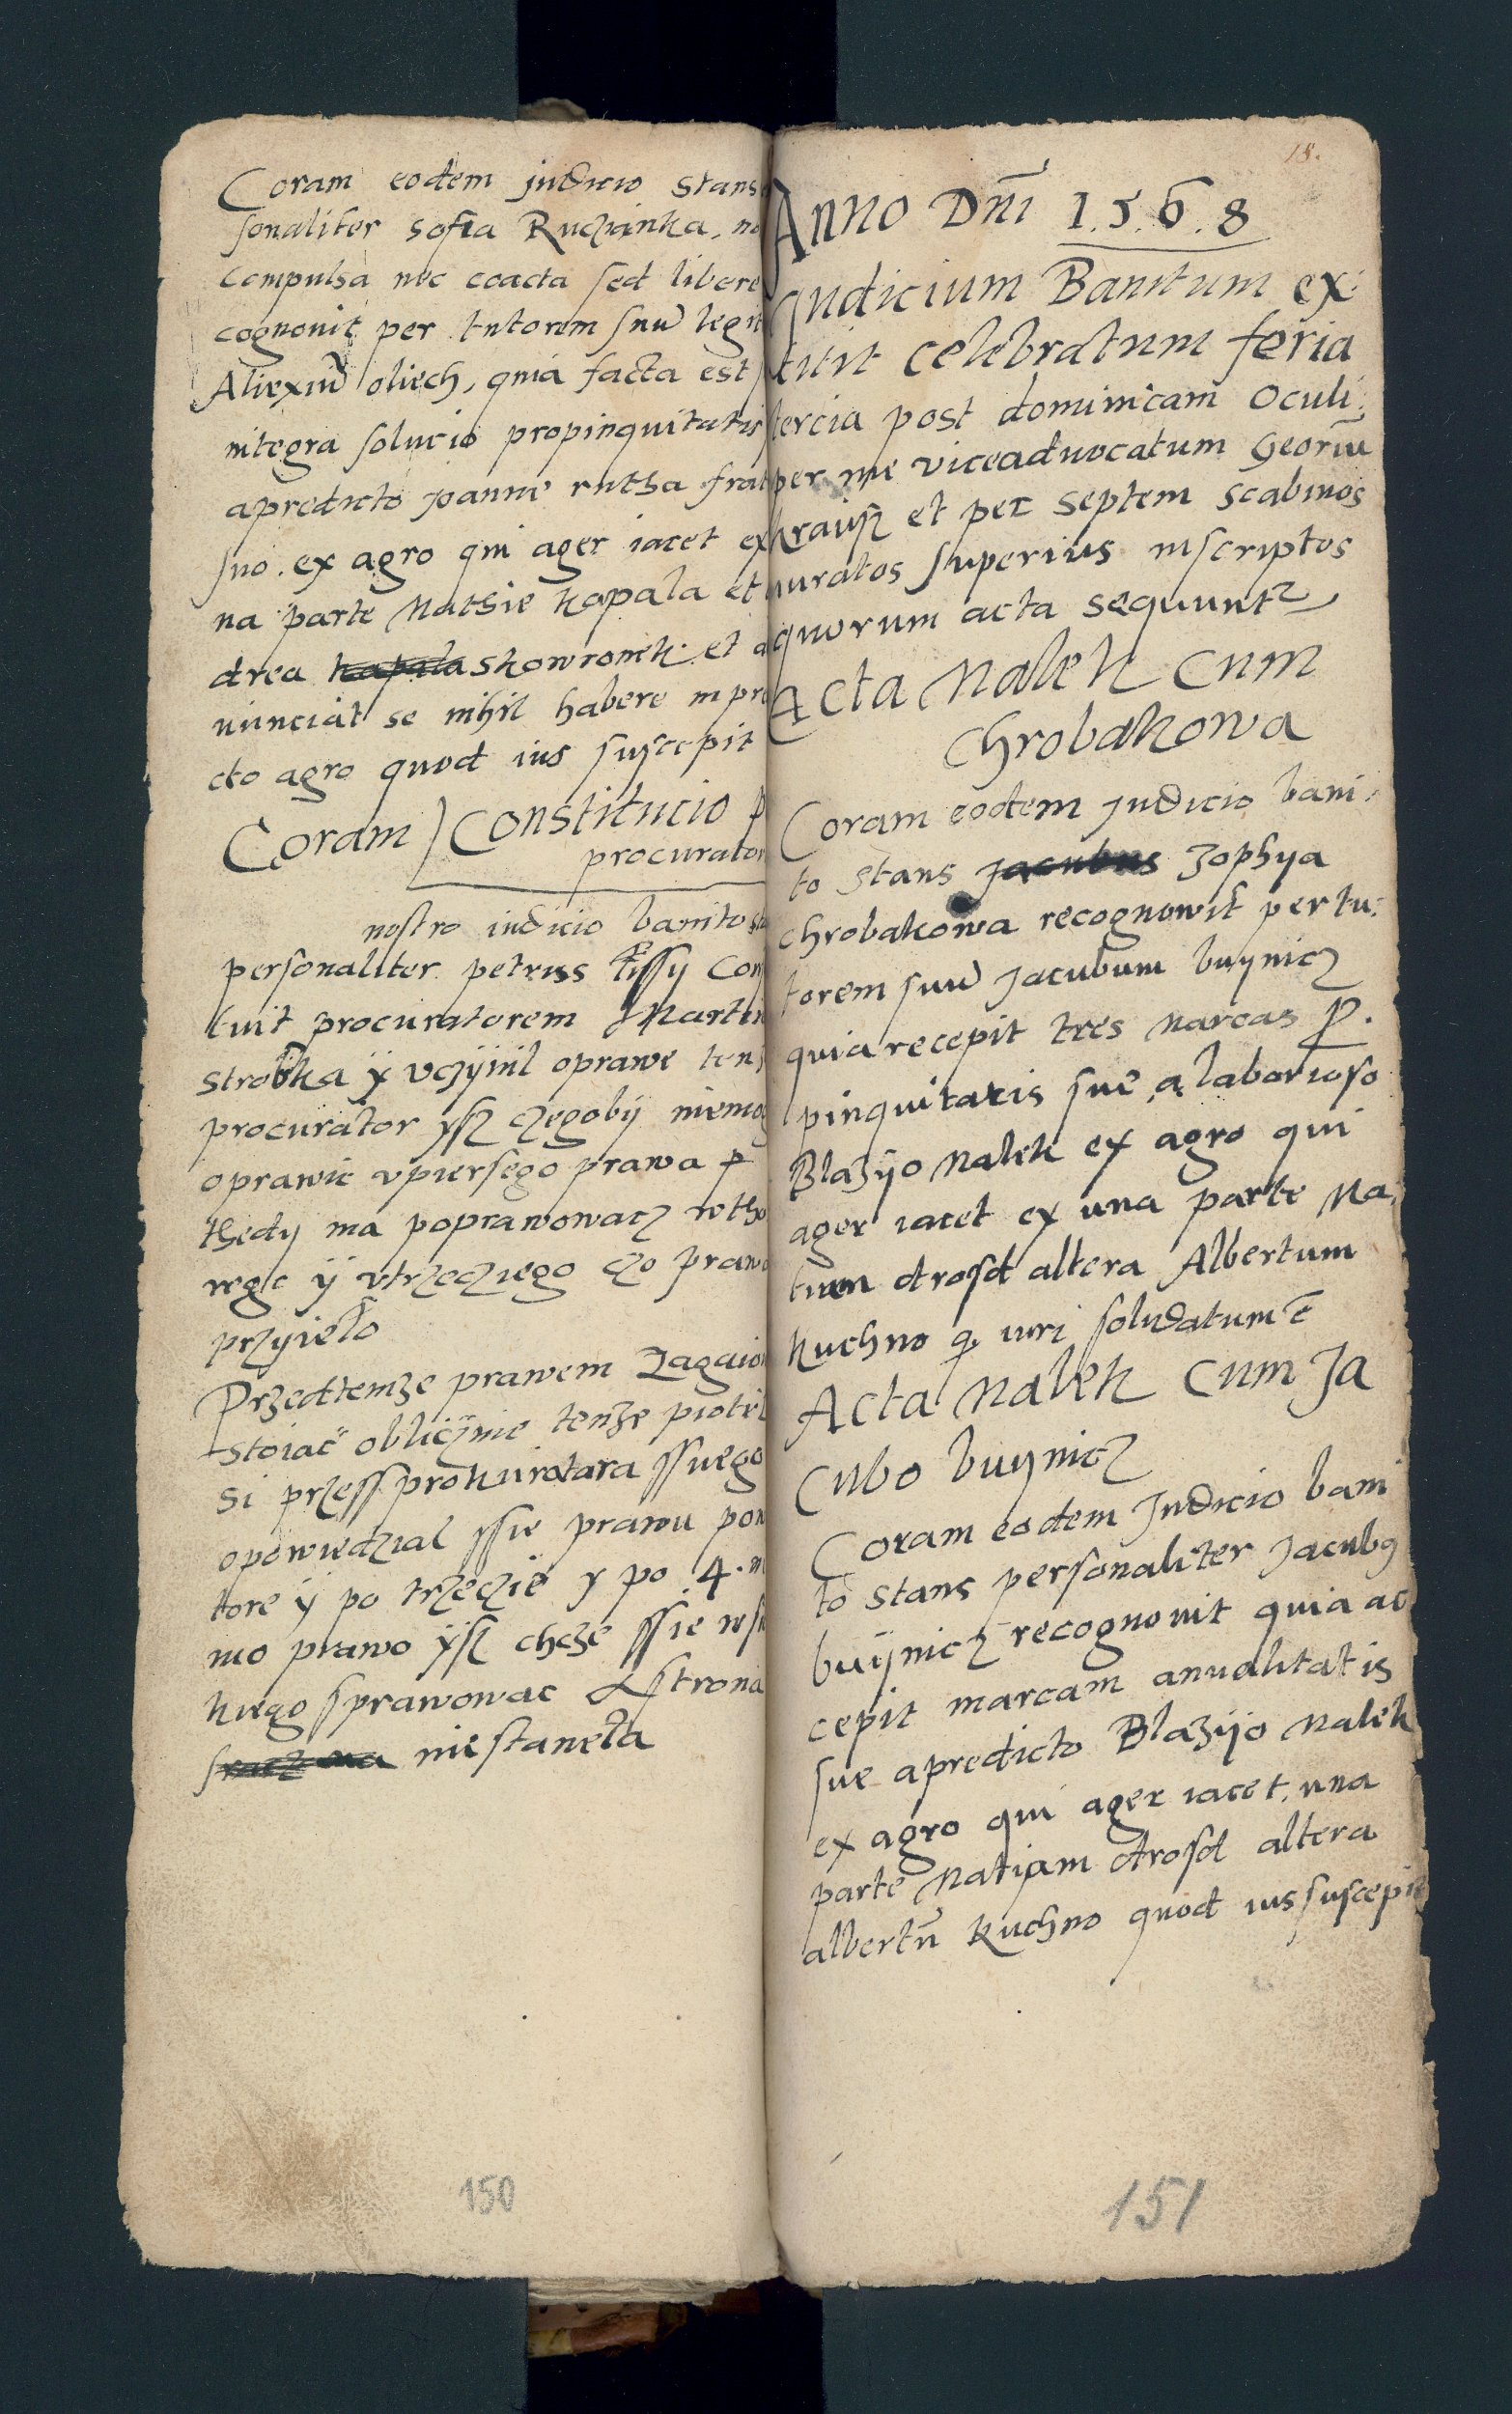 Coram eodem judicio stans
sonaliter sofia Ruczianka, no
compulsa nec coacta sed libere
cognouit per tutorem suū legit
Aliexiū oliech, quia facta est
integra solucio propinquitatis
apredicto joanne rutha frat
suo. ex agro qui ager iacet ex
na parte Mathie kapala et
drea kapala skowronek et a
nunciat se nihil habere in pre
cto agro quod ius suscepit
Coram) Constitucio p
procurator
nostro iudicio banito sta
personaliter petrus lissy Con
tuit procuratorem Martin
strobka ÿ vczÿnil oprawe ten
procurator ysz czegobÿ niemog
oprawic vpiersego prawa
thedy ma poprawowacz wtho
rego ÿ vtrzecziego czo prawo
przyielo
Przedtemze prawem Zagaion
stoiac oblicznie tenze piotr l
si przess prokuratara ssuego
opowiedzial ssie prawu pow
tore ÿ po trzeczie y po 4.
mo prawo ÿsz chcze ssie wsi
kiego sprawowac A strona
niestaneła
18.
Anno Dn̄i 1.5.6.8
Judicium Banitum ex
titit celebratum feria
tercia post dominicam Oculi
per me viceaduocatum Georiū
krausz et per septem scabinos
iuratos superius inscriptos
quorum acta sequuntr
Acta Malek Cum
Chrobakowa
Coram eodem judicio bani
to stans Jacubus Zophya
chrobakowa recognowit per tu
torem suū Jacubum buynicz
quia recepit tres marcas p.
pinquitatis sue, a laborioso
Blazÿo Malek ex agro qui
ager iacet ex una parte Ma
tiam drosd altera Albertum
kuchno q iuri solidatum ē
Acta Malek Cum Ja
Cubo buynicz
Coram eodem Judicio bani
to stans personaliter Jacubq
buÿnicz recognouit quia ac
cepit marcam anualitatis
sue apredicto Blazÿo Malek
ex agro qui ager iacet una
parte Matiam drosd altera
albertū kuchno quod ius suscepit
150
151